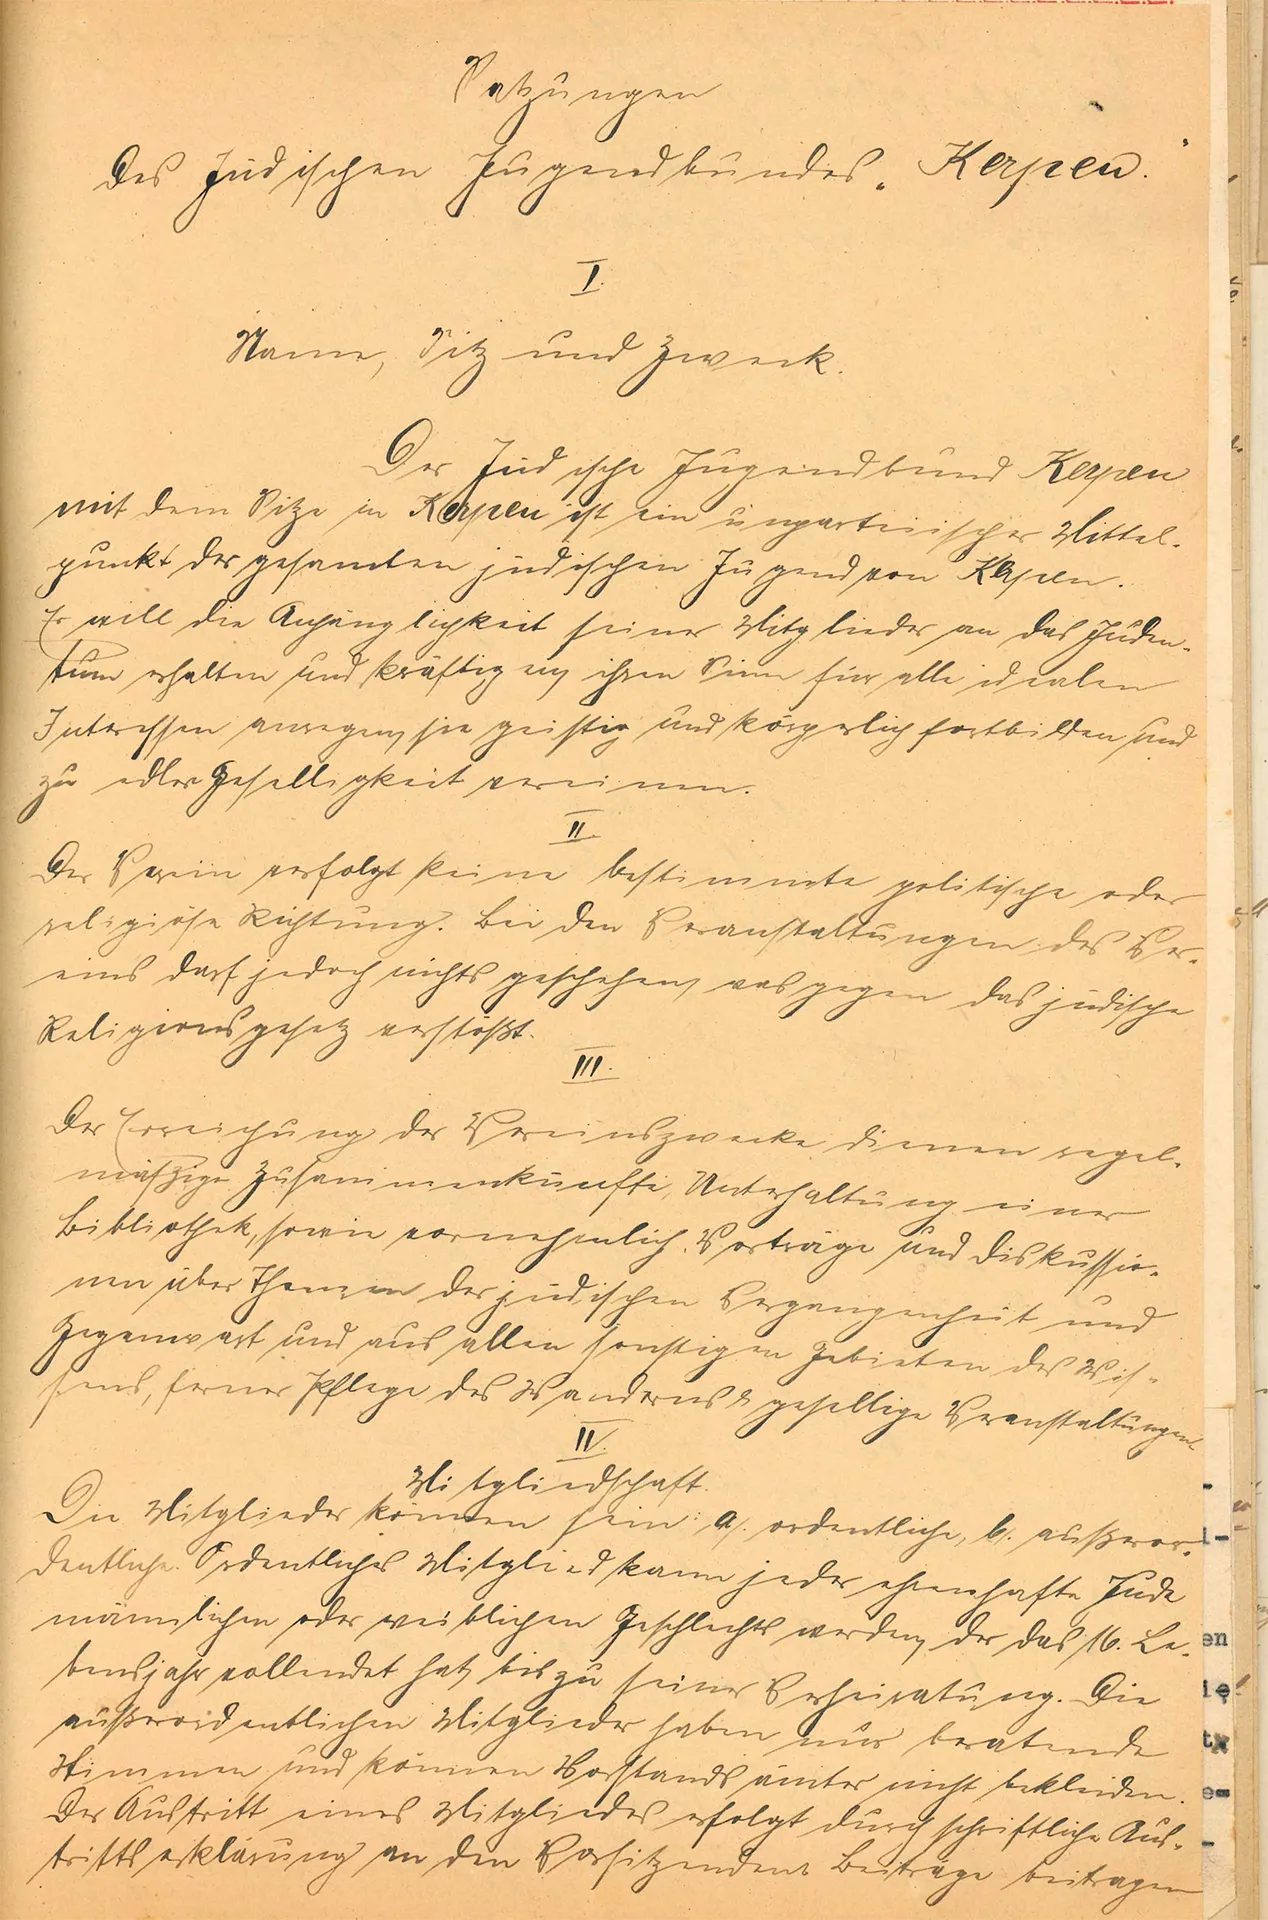 Satzungen
des Jüdischen Jugendbundes „Kerpen."
I.
Name, Sitz und Zweck.
Der Jüdische Jugendbund Kerpen
mit dem Sitze in Kerpen ist ein unparteiischer Mittel-
punkt der gesamten jüdischen Jugend von Kerpen.
Er will die Anhänglichkeit seiner Mitglieder an das Juden-
tum erhalten und kräftigen, ihren Sinn für alle idealen
Interessen anregen, sie geistig und körperlich fortbilden, und
zu edler Geselligkeit vereinen.
II.
Der Verein verfolgt keine bestimmte politische oder
religiöse Richtung. Bei den Veranstaltungen des Ver-
eins darf jedoch nichts geschehen, was gegen das jüdische
Religionsgesetz verstößt.
III.
Der Erreichung der Vereinszwecke dienen regel-
mäßige Zusammenkünfte, Unterhaltung einer
Bibliothek, sowie vornehmlich Vorträge und Diskussio-
nen über Themen der jüdischen Vergangenheit und
Gegenwart und aus allen sonstigen Gebieten des Wis-
sens, ferner Pflege des Wanderns & gesellige Veranstaltungen
IV.
Mitgliedschaft.
Die Mitglieder können sein: a/. ordentliche, b/. außeror-
dentliche. Ordentliches Mitglied kann jeder ehrenhafte Jude
männlichen oder weiblichen Geschlechts werden, der das 16. Le-
bensjahr vollendet hat, bis zu seiner Verheiratung. Die
außerordentlichen Mitglieder haben nur beratende
Stimmen und können Vorstandsämter nicht bekleiden.
Der Austritt eines Mitgliedes erfolgt durch schriftliche Aus-
trittserklärung an den Vorsitzenden. Beiträge beitragen